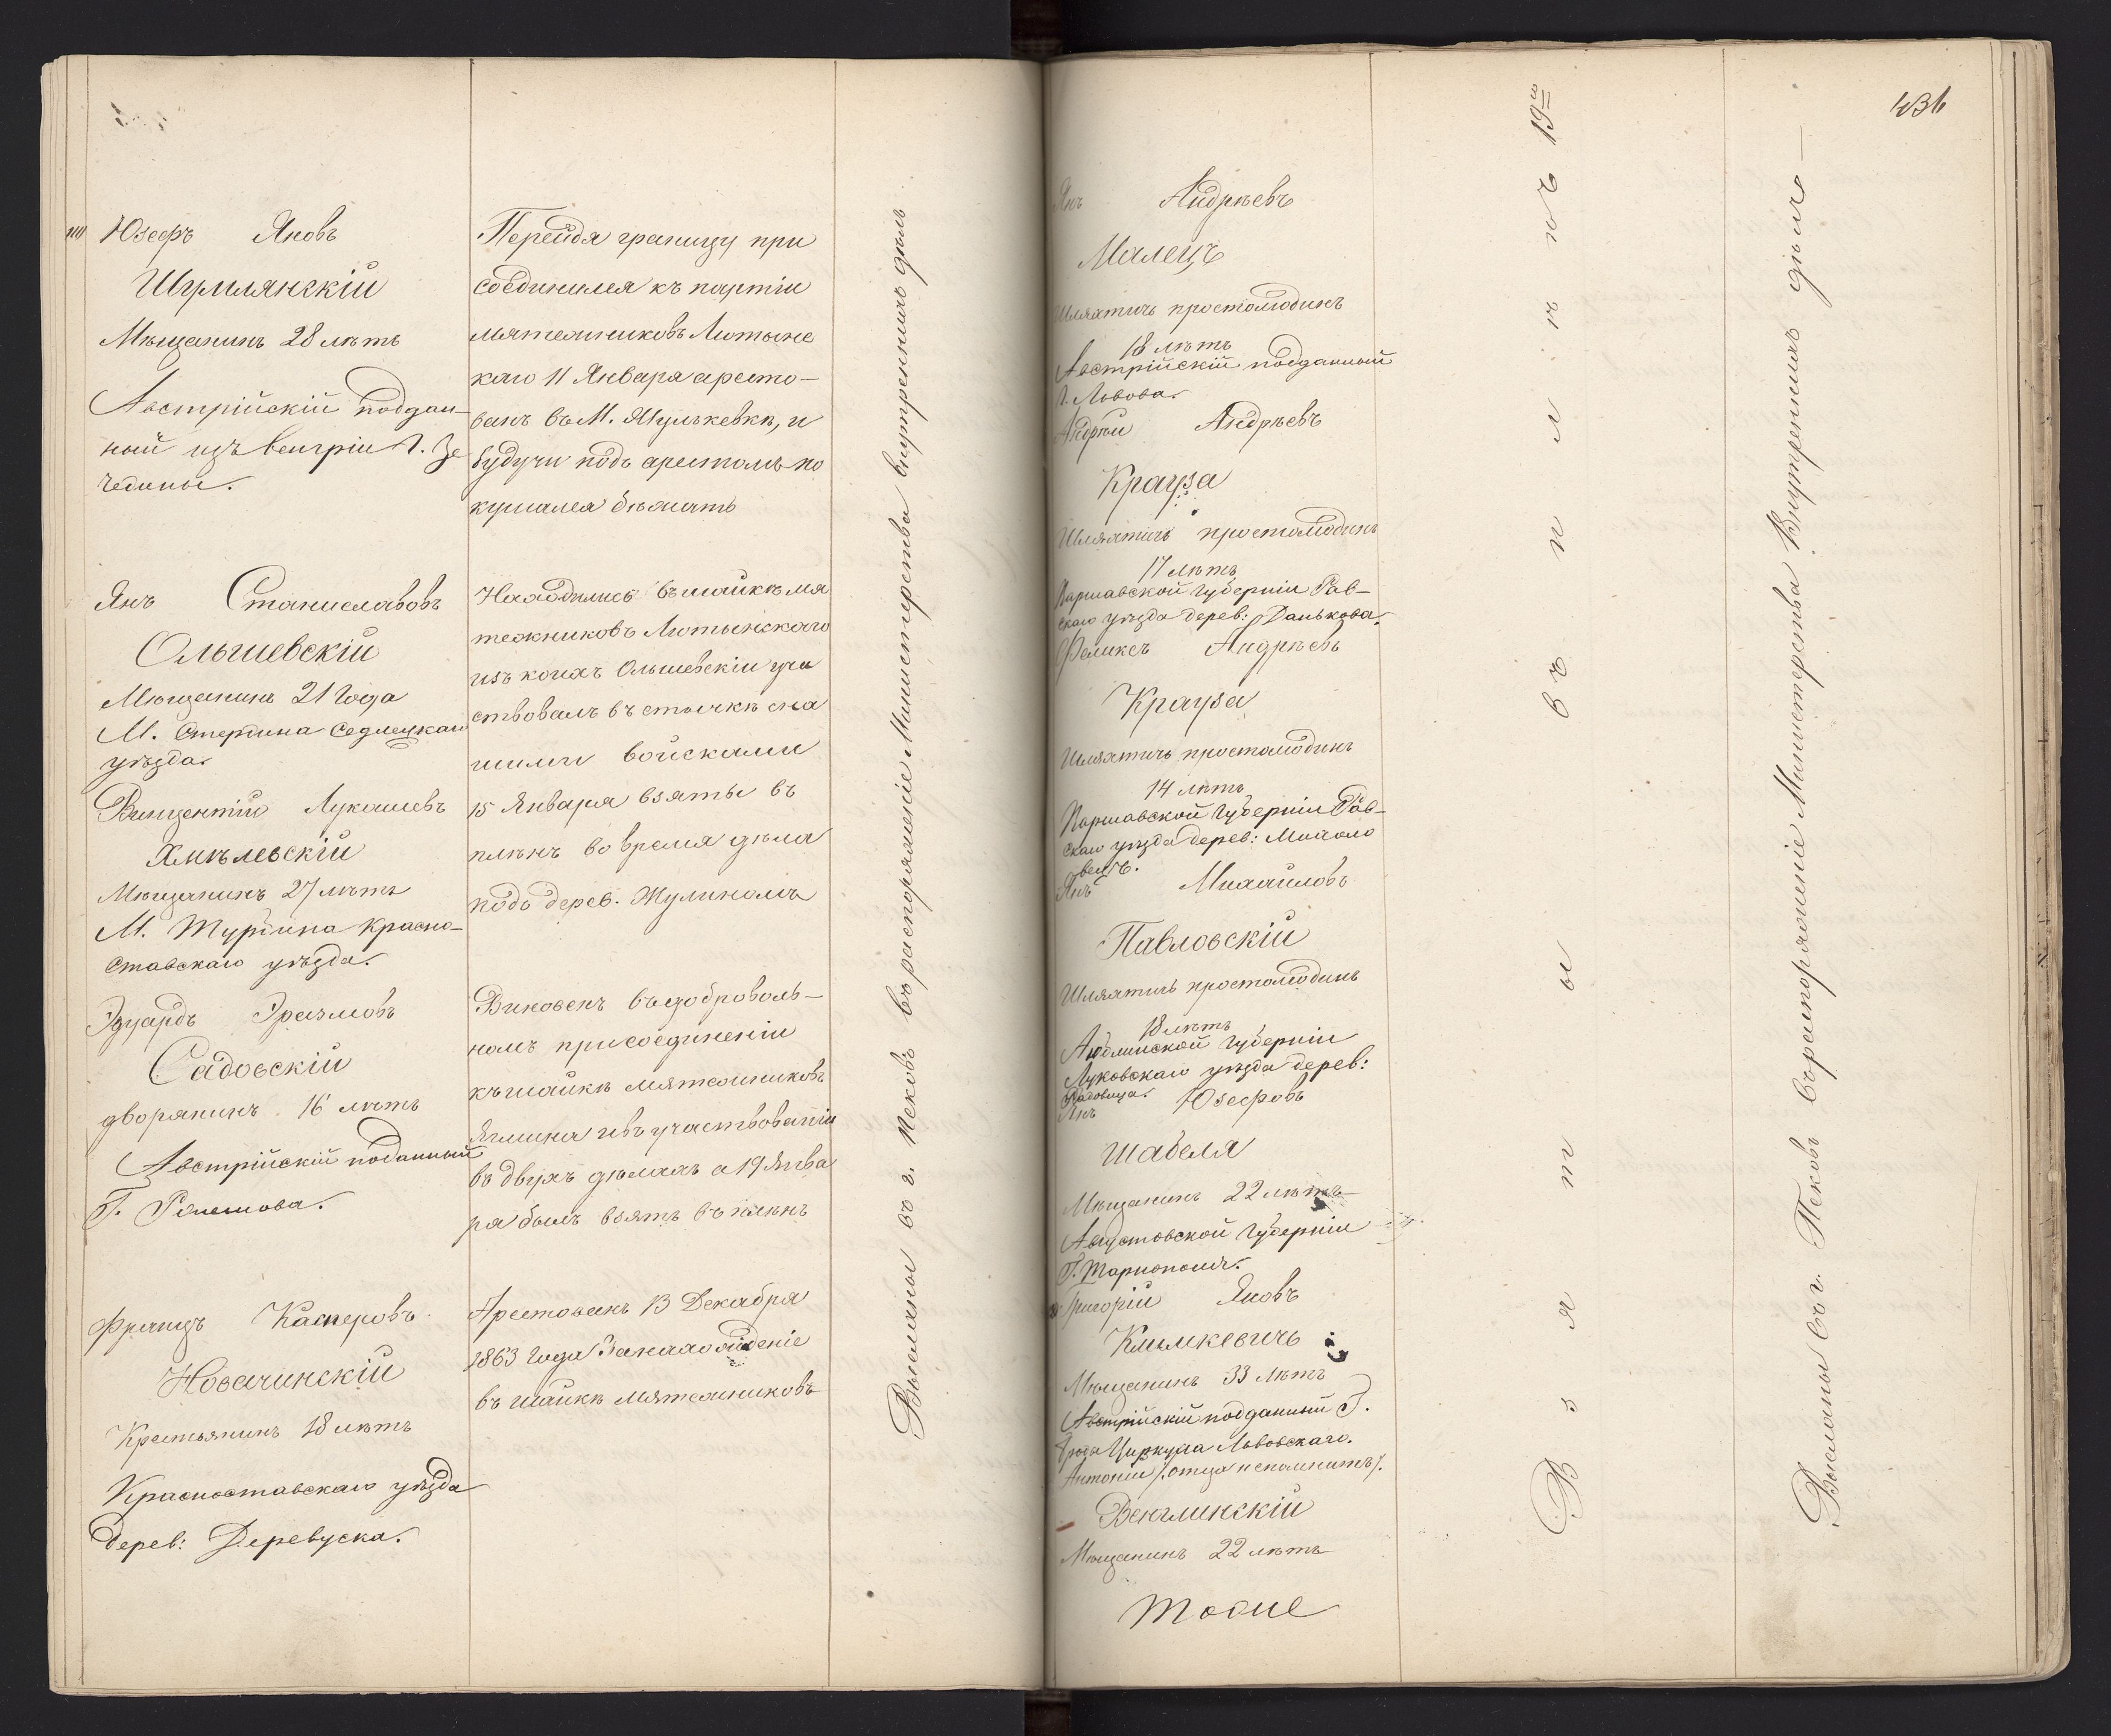 Юзефъ Яновъ
Шумлянскій
Мѣщанинъ 28 лѣтъ
Австрійскій поддан-
ный изъ венгріи Г. Зе
чедины.
Перейдя границу при
соединился къ партіи
мятежниковъ Лютынс
каго 11 Января аресто-
ванъ въ М. Жулькевкѣ, и
будучи подъ арестомъ по
кушался бѣжать
Янъ Станиславовъ
Ольшевскій
Мѣщанинъ 21 года
М. Стердина Седлецкаго
уѣзда.
Винцентій Лукашевъ
Хмѣлевскій
Мѣщанинъ 27 лѣтъ
М. Турбина Красно-
ставскаго уѣзда.
Находились въ шайкѣ мя
тежниковъ Лютынскаго
изъ коихъ Ольшевскій уча
ствовалъ въ стычкѣ съ на
шими войсками
15 Января взяты въ
плѣнъ во время дѣла
подъ дерев. Жулиномъ
Эдуардъ Эразмовъ
Садовскій
дворянинъ 16 лѣтъ
Австрійскій поданный
Г. Ржешова.
Виновенъ въ доброволь-
номъ присоединеніи
къ шайкѣ мятежниковъ
Ягмина и въ участвованіи
въ двухъ дѣлахъ а 19 Янва
ря былъ взятъ въ плѣнъ
Францъ Касперовъ
Новачинскій
Крестьянинъ 18 лѣтъ
Красноставскаго уѣзда
дерев: Деревуска.
Арестованъ 13 Декабря
1863 года За нахожденіе
въ шайкѣ мятежниковъ
Высланы въ г. Псковъ въ распоряженіе Министерства внутреннихъ дѣлъ
436
Янъ Андрѣевъ
Малецъ
Шляхтичь простолюдинъ
18 лѣтъ
Австрійскій подданный
Г. Львова.
Андрей Андрѣевъ
Крауза
Шляхтичь простолюдинъ
17 лѣтъ
Варшавской губерніи Рав-
скаго уѣзда дерев: Данькова.
Феликсъ Андрѣевъ
Крауза
Шляхтичь простолюдинъ
14 лѣтъ
Варшавской губерніи Рав-
скаго уѣзда дерев:
Янъ Михайловъ
Павловскій
Шляхтичь простолюдинъ
18 лѣтъ
Люблинской губерніи
Луковскаго уѣзда дерев:
Янъ Юзефовъ
Шабеля
Мѣщанинъ 22 лѣтъ
Августовской губерніи
Г. Маріополя.
Григорій Яновъ
Климкевичь
Мѣщанинъ 33 лѣтъ
Австрійскій подданный Г.
Циркула Львовскаго.
Антоній /:отца неспомнитъ:/.
Венглинскій
Мѣщанинъ 22 лѣтъ
Тоже
Взяты въ плѣнъ 19го
Высланы въ г. Псковъ въ распоряженіе Министерства Внутреннихъ дѣлъ